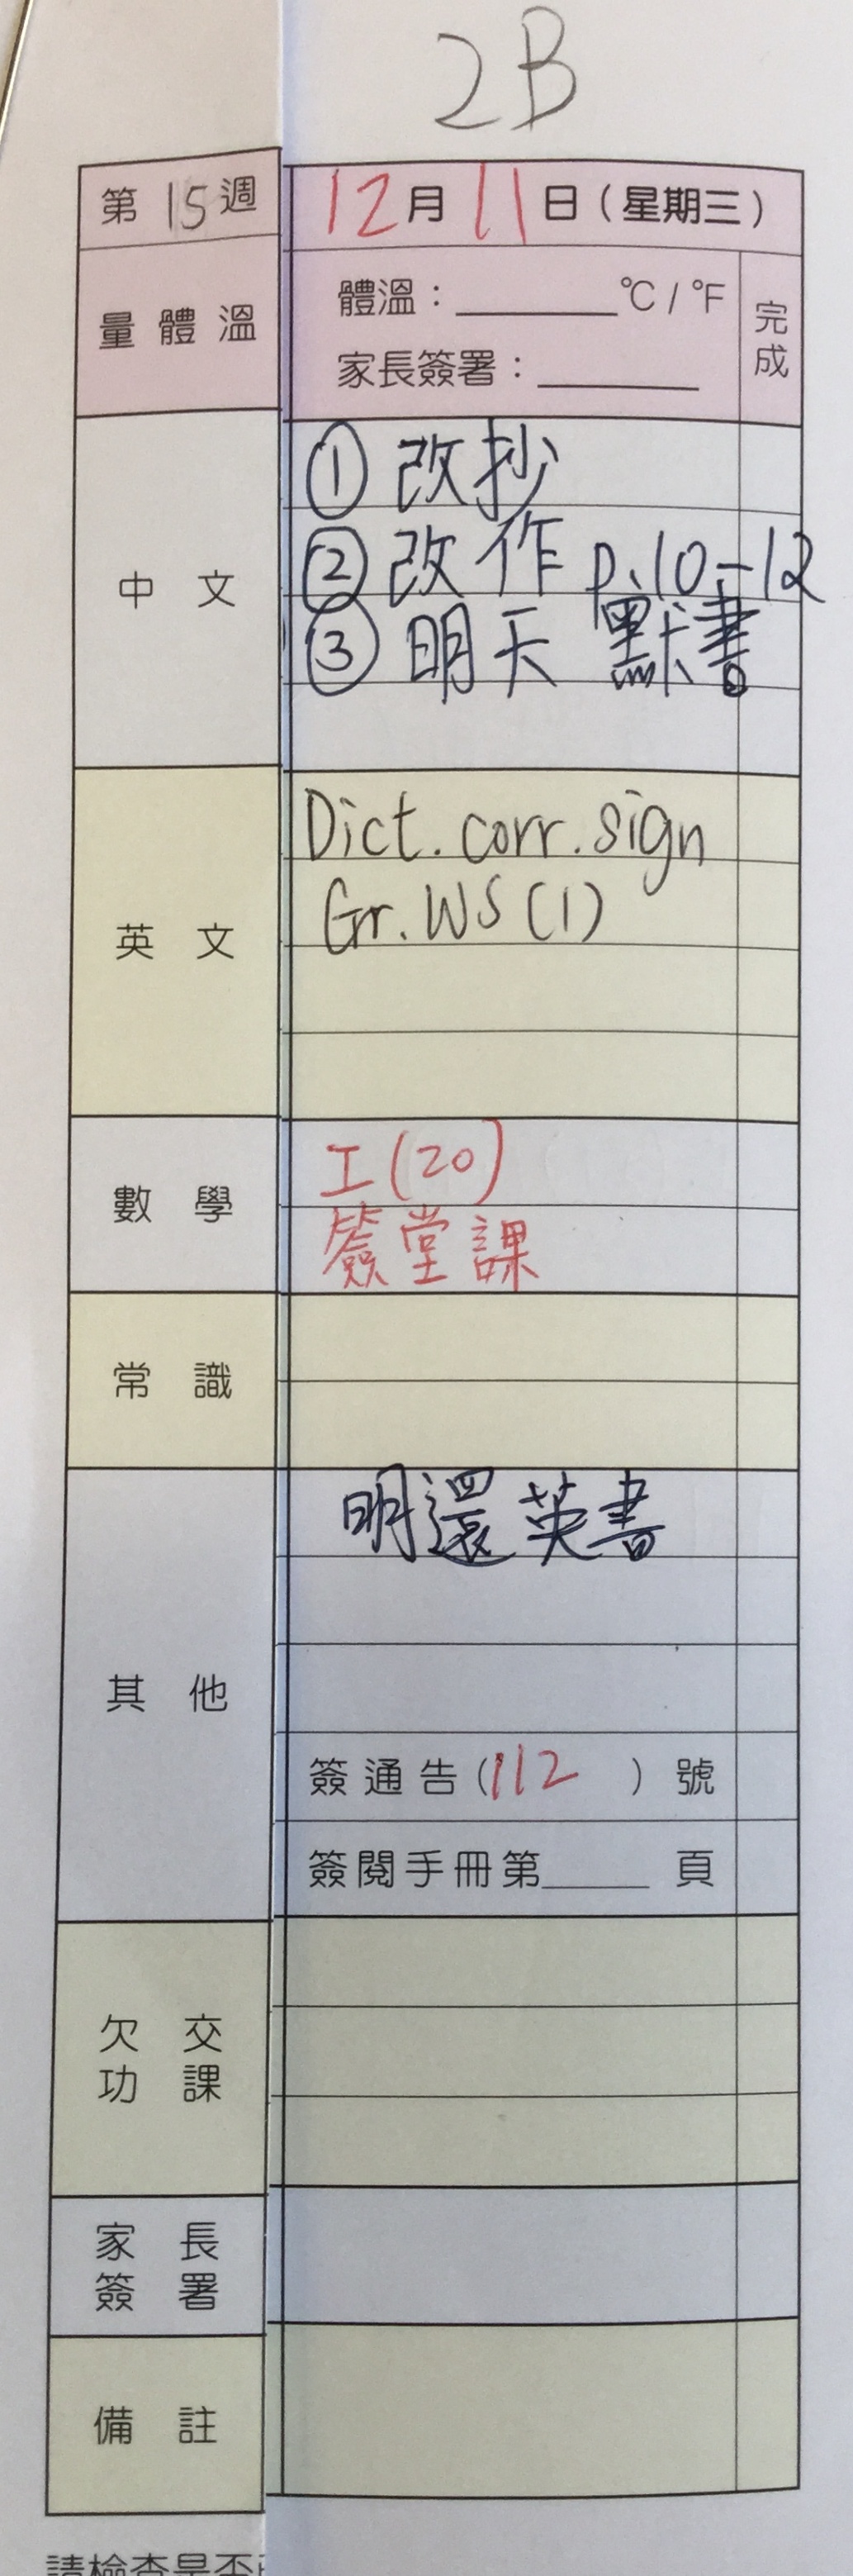 2B
第15週 12月11日（星期三）
量體溫 體溫：______°C / °F 完成
家長簽署：______
中文 ① 改抄
② 改作 p.10-12
③ 明天 默書。
英文 Dict. corr. sign
Gr. WS (1)
數學 工(20)
簽堂課
常識
其他 明還英書
簽通告(112 ) 號
簽閱手冊第____ 頁
欠交功課
家長簽署
備註
請檢查是否